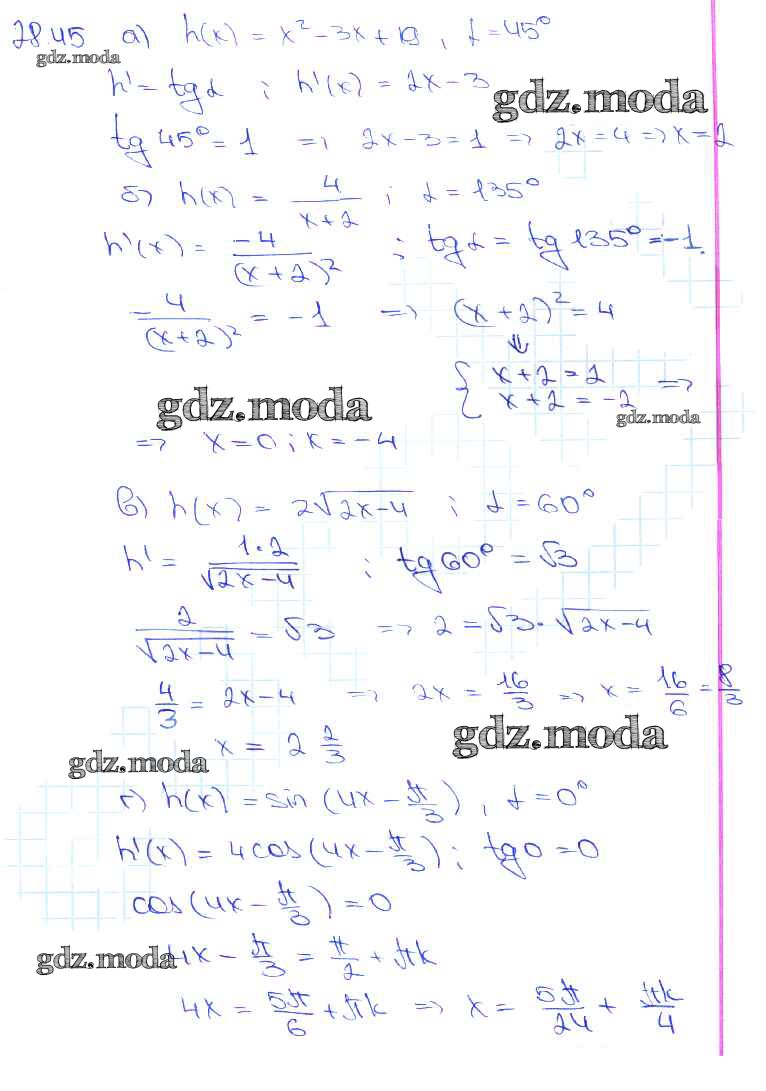 28.45 а) h(x) = x² – 3x + 19, α = 45°
gdz.moda
h' = tg α ; h'(x) = 2x – 3
gdz.moda
tg 45° = 1 => 2x – 3 = 1 => 2x = 4 => x = 2
б) h(x) = 4/(x+2) ; α = 135°
h'(x) = –4/(x+2)² ; tg α = tg 135° = –1.
–4/(x+2)² = –1 => (x+2)² = 4
⇓
{ x + 2 = 2 =>
x + 2 = –2
gdz.moda
gdz.moda
=> x = 0 ; x = –4
в) h(x) = 2√(2x–4) ; α = 60°
h' = 1·2/√(2x–4) ; tg 60° = √3
2/√(2x–4) = √3 => 2 = √3 · √(2x–4)
4/3 = 2x – 4 => 2x = 16/3 => x = 16/6 = 8/3
x = 2 2/3
gdz.moda
gdz.moda
г) h(x) = sin (4x – π/3), α = 0°
h'(x) = 4cos(4x – π/3) ; tg 0 = 0
cos(4x – π/3) = 0
gdz.moda
4x – π/3 = π/2 + πk
4x = 5π/6 + πk => x = 5π/24 + πk/4